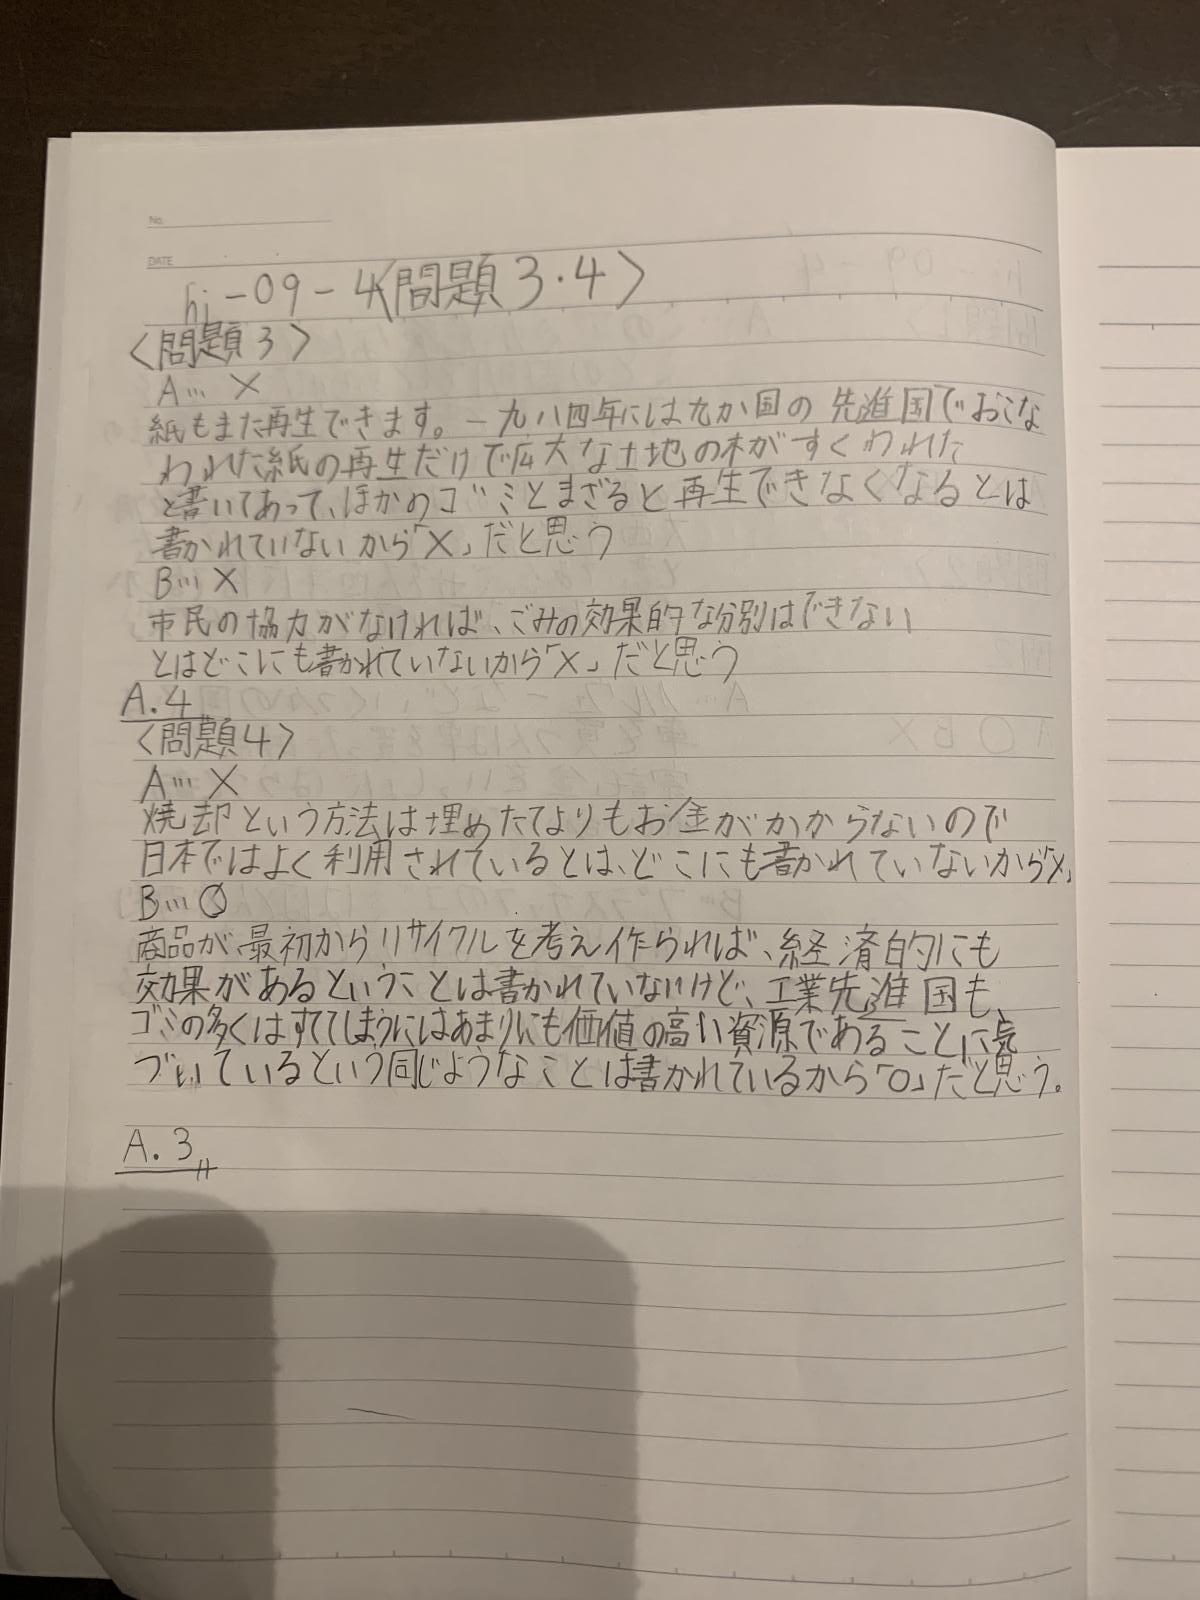 No.
DATE
hi-09-4〈問題3・4〉
〈問題3〉
A… ×
紙もまた再生できます。一九八四年には九か国の先進国でおこな
われた紙の再生だけで広大な土地の木がすくわれた
と書いてあって、ほかのゴミとまざると再生できなくなるとは
書かれていないから「×」だと思う
B… ×
市民の協力がなければ、ごみの効果的な分別はできない
とはどこにも書かれていないから「×」だと思う
A.4
〈問題4〉
A… ×
焼却という方法は埋めたてよりもお金がかからないので
日本ではよく利用されているとは、どこにも書かれていないから「×」
B… ○
商品が、最初からリサイクルを考え作られれば、経済的にも
効果があるということは書かれていないけど、工業先進国も、
ゴミの多くはすててしまうにはあまりにも価値の高い資源であることに気
づいているという同じようなことは書かれているから「○」だと思う。
A.3